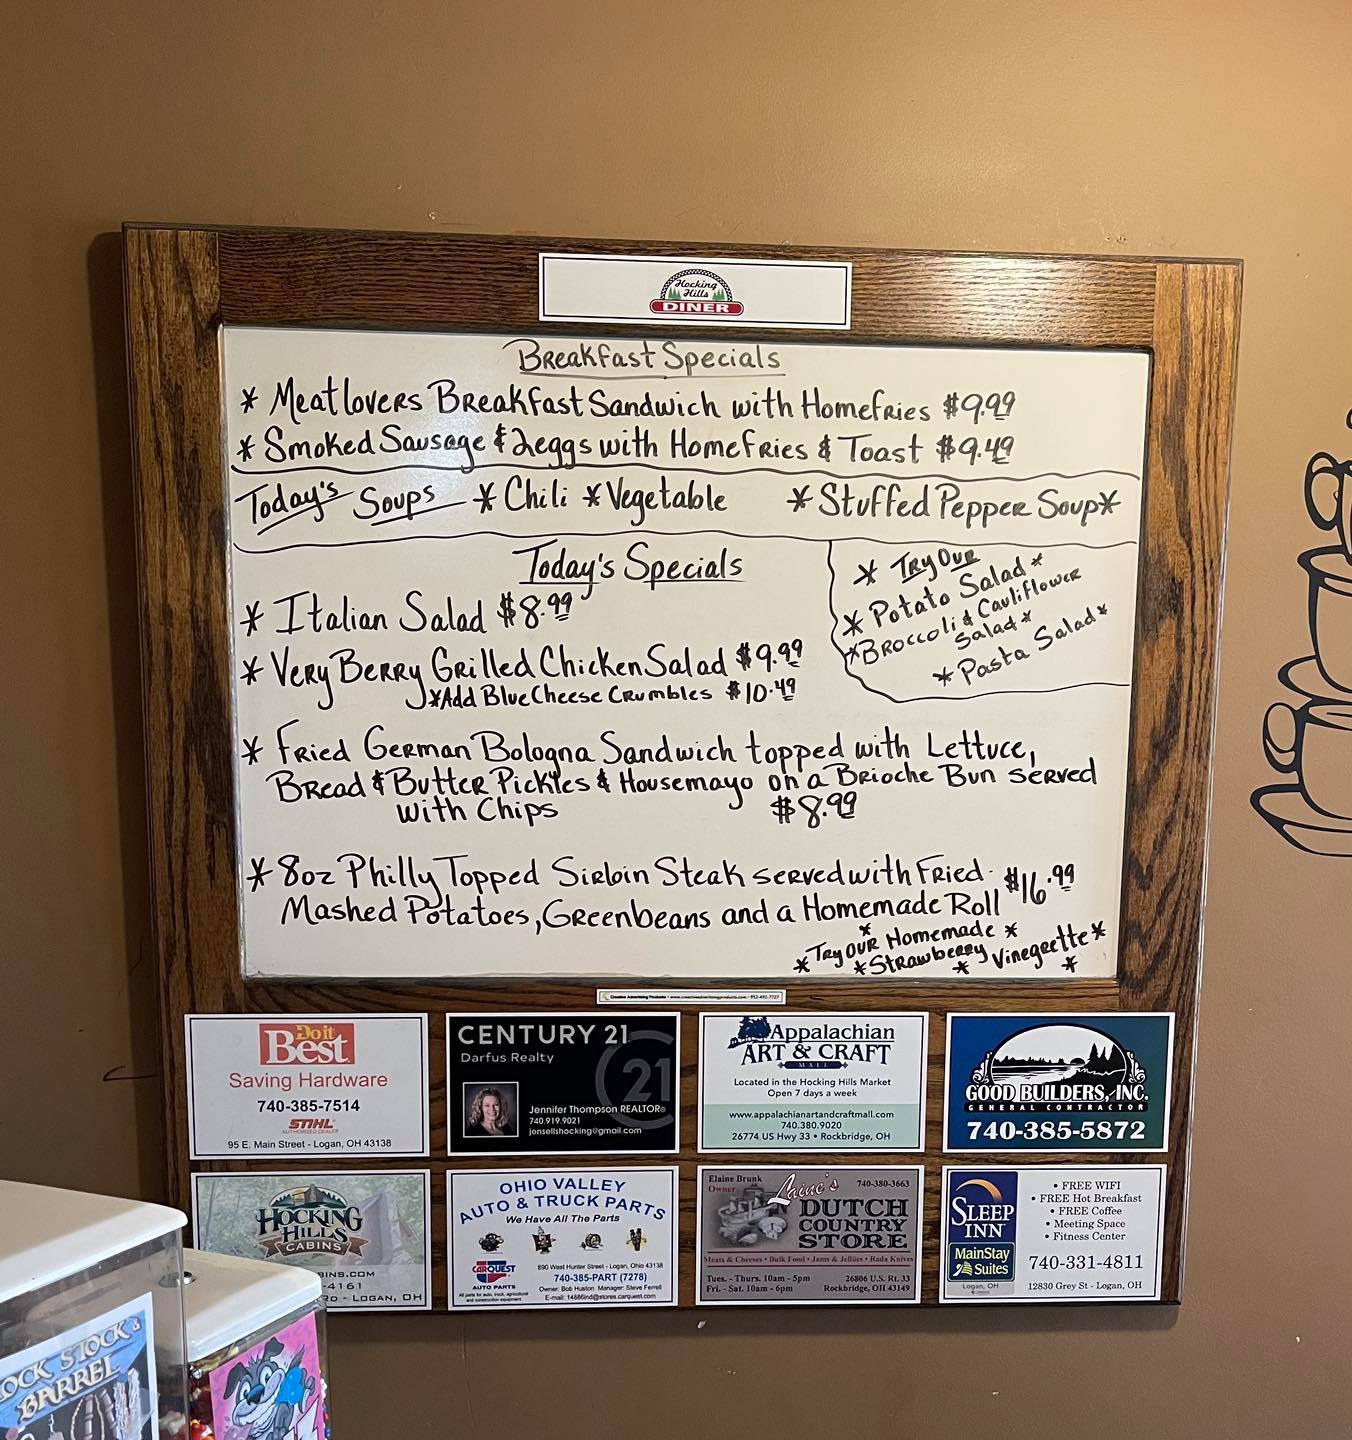 Hocking
Hills
DINER
Breakfast Specials
* Meatlovers Breakfast Sandwich with Homefries $9.99
* Smoked Sausage & 2eggs with Homefries & Toast $9.49
Today's Soups * Chili * Vegetable * Stuffed Pepper Soup *
Today's Specials
* Italian Salad $8.99
* Very Berry Grilled Chicken Salad $9.99
*Add Blue Cheese Crumbles $10.49
* Try Our
* Potato Salad *
* Broccoli & Cauliflower
Salad *
* Pasta Salad *
* Fried German Bologna Sandwich topped with Lettuce,
Bread & Butter Pickles & Housemayo on a Brioche Bun served
with Chips $8.99
* 8oz Philly Topped Sirloin Steak served with Fried
Mashed Potatoes, Greenbeans and a Homemade Roll $16.99
* Try our Homemade *
* Strawberry * Vinegrette *
Creative Advertising Products • www.creativeadvertisingproducts.com • 952-492-7727
Do it
Best
Saving Hardware
740-385-7514
STIHL
AUTHORIZED DEALER
95 E. Main Street - Logan, OH 43138
CENTURY 21
Darfus Realty
21
Jennifer Thompson REALTOR®
740.919.9021
jensellshocking@gmail.com
Appalachian
ART & CRAFT
MALL
Located in the Hocking Hills Market
Open 7 days a week
www.appalachianartandcraftmall.com
740.380.9020
26774 US Hwy 33 • Rockbridge, OH
GOOD BUILDERS, INC.
GENERAL CONTRACTOR
740-385-5872
HOCKING
HILLS
CABINS
INS.COM
-4161
RD - LOGAN, OH
OHIO VALLEY
AUTO & TRUCK PARTS
We Have All The Parts
CARQUEST
AUTO PARTS
All parts for auto, truck, agricultural
and construction equipment
890 West Hunter Street - Logan, Ohio 43138
740-385-PART (7278)
Owner: Bob Huston Manager: Steve Ferrell
E-mail: 14886ind@stores.carquest.com
Elaine Brunk
Owner
740-380-3663
Laine's
DUTCH
COUNTRY
STORE
Meats & Cheeses • Bulk Food • Jams & Jellies • Rada Knives
Tues. - Thurs. 10am - 5pm
Fri. - Sat. 10am - 6pm
26806 U.S. Rt. 33
Rockbridge, OH 43149
SLEEP
INN
MainStay
& Suites
Logan, OH
• FREE WIFI
• FREE Hot Breakfast
• FREE Coffee
• Meeting Space
• Fitness Center
740-331-4811
12830 Grey St - Logan, OH
OCK STOCK &
BARREL